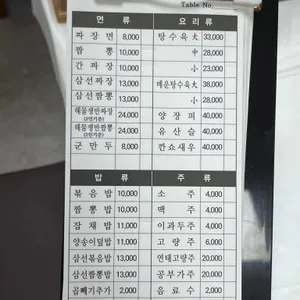 Table No.
면 류
요 리 류
짜 장 면 8,000
탕수육 大 33,000
짬 뽕 10,000
中 28,000
간 짜 장 10,000
小 23,000
삼선짜장 13,000
매운탕수육 大 38,000
삼선짬뽕 13,000
小 28,000
해물쟁반짜장 (2인기준) 24,000
양 장 피 40,000
해물쟁반짬뽕 (2인기준) 24,000
유 산 슬 40,000
군 만 두 8,000
깐쇼새우 40,000
밥 류
주 류
볶 음 밥 10,000
소 주 4,000
짬 뽕 밥 10,000
맥 주 4,000
잡 채 밥 11,000
이과두주 4,000
양송이덮밥 11,000
고 량 주 6,000
삼선볶음밥 13,000
연태고량주 20,000
삼선짬뽕밥 13,000
공부가주 20,000
곱빼기추가 2,000
음 료 수 2,000